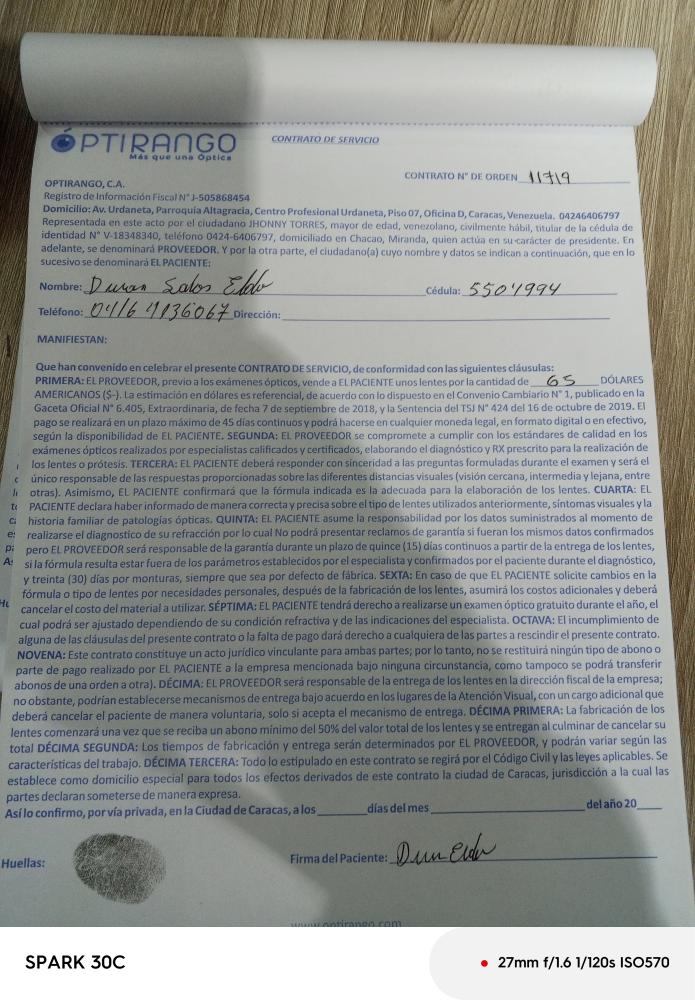 ÓPTIRANGO
Más que una Óptica
CONTRATO DE SERVICIO
CONTRATO N° DE ORDEN 11719
OPTIRANGO, C.A.
Registro de Información Fiscal N° J-505868454
Domicilio: Av. Urdaneta, Parroquia Altagracia, Centro Profesional Urdaneta, Piso 07, Oficina D, Caracas, Venezuela. 04246406797
Representada en este acto por el ciudadano JHONNY TORRES, mayor de edad, venezolano, civilmente hábil, titular de la cédula de
identidad N° V-18348340, teléfono 0424-6406797, domiciliado en Chacao, Miranda, quien actúa en su carácter de presidente. En
adelante, se denominará PROVEEDOR. Y por la otra parte, el ciudadano(a) cuyo nombre y datos se indican a continuación, que en lo
sucesivo se denominará EL PACIENTE:
Nombre: Duran Cédula: 5501994
Teléfono: Dirección:
MANIFIESTAN:
Que han convenido en celebrar el presente CONTRATO DE SERVICIO, de conformidad con las siguientes cláusulas:
PRIMERA: EL PROVEEDOR, previo a los exámenes ópticos, vende a EL PACIENTE unos lentes por la cantidad de 65 DÓLARES
AMERICANOS ($-). La estimación en dólares es referencial, de acuerdo con lo dispuesto en el Convenio Cambiario N° 1, publicado en la
Gaceta Oficial N° 6.405, Extraordinaria, de fecha 7 de septiembre de 2018, y la Sentencia del TSJ N° 424 del 16 de octubre de 2019. El
pago se realizará en un plazo máximo de 45 días continuos y podrá hacerse en cualquier moneda legal, en formato digital o en efectivo,
según la disponibilidad de EL PACIENTE. SEGUNDA: EL PROVEEDOR se compromete a cumplir con los estándares de calidad en los
exámenes ópticos realizados por especialistas calificados y certificados, elaborando el diagnóstico y RX prescrito para la realización de
los lentes o prótesis. TERCERA: EL PACIENTE deberá responder con sinceridad a las preguntas formuladas durante el examen y será el
único responsable de las respuestas proporcionadas sobre las diferentes distancias visuales (visión cercana, intermedia y lejana, entre
otras). Asimismo, EL PACIENTE confirmará que la fórmula indicada es la adecuada para la elaboración de los lentes. CUARTA: EL
PACIENTE declara haber informado de manera correcta y precisa sobre el tipo de lentes utilizados anteriormente, síntomas visuales y la
historia familiar de patologías ópticas. QUINTA: EL PACIENTE asume la responsabilidad por los datos suministrados al momento de
realizarse el diagnostico de su refracción por lo cual No podrá presentar reclamos de garantía si fueran los mismos datos confirmados
pero EL PROVEEDOR será responsable de la garantía durante un plazo de quince (15) días continuos a partir de la entrega de los lentes,
si la fórmula resulta estar fuera de los parámetros establecidos por el especialista y confirmados por el paciente durante el diagnóstico,
y treinta (30) días por monturas, siempre que sea por defecto de fábrica. SEXTA: En caso de que EL PACIENTE solicite cambios en la
fórmula o tipo de lentes por necesidades personales, después de la fabricación de los lentes, asumirá los costos adicionales y deberá
cancelar el costo del material a utilizar. SÉPTIMA: EL PACIENTE tendrá derecho a realizarse un examen óptico gratuito durante el año, el
cual podrá ser ajustado dependiendo de su condición refractiva y de las indicaciones del especialista. OCTAVA: El incumplimiento de
alguna de las cláusulas del presente contrato o la falta de pago dará derecho a cualquiera de las partes a rescindir el presente contrato.
NOVENA: Este contrato constituye un acto jurídico vinculante para ambas partes; por lo tanto, no se restituirá ningún tipo de abono o
parte de pago realizado por EL PACIENTE a la empresa mencionada bajo ninguna circunstancia, como tampoco se podrá transferir
abonos de una orden a otra). DÉCIMA: EL PROVEEDOR será responsable de la entrega de los lentes en la dirección fiscal de la empresa;
no obstante, podrían establecerse mecanismos de entrega bajo acuerdo en los lugares de la Atención Visual, con un cargo adicional que
deberá cancelar el paciente de manera voluntaria, solo si acepta el mecanismo de entrega. DÉCIMA PRIMERA: La fabricación de los
lentes comenzará una vez que se reciba un abono mínimo del 50% del valor total de los lentes y se entregan al culminar de cancelar su
total DÉCIMA SEGUNDA: Los tiempos de fabricación y entrega serán determinados por EL PROVEEDOR, y podrán variar según las
características del trabajo. DÉCIMA TERCERA: Todo lo estipulado en este contrato se regirá por el Código Civil y las leyes aplicables. Se
establece como domicilio especial para todos los efectos derivados de este contrato la ciudad de Caracas, jurisdicción a la cual las
partes declaran someterse de manera expresa.
Así lo confirmo, por vía privada, en la Ciudad de Caracas, a los días del mes del año 20
Huellas: Firma del Paciente:
www.optirango.com
SPARK 30C
27mm f/1.6 1/120s ISO570